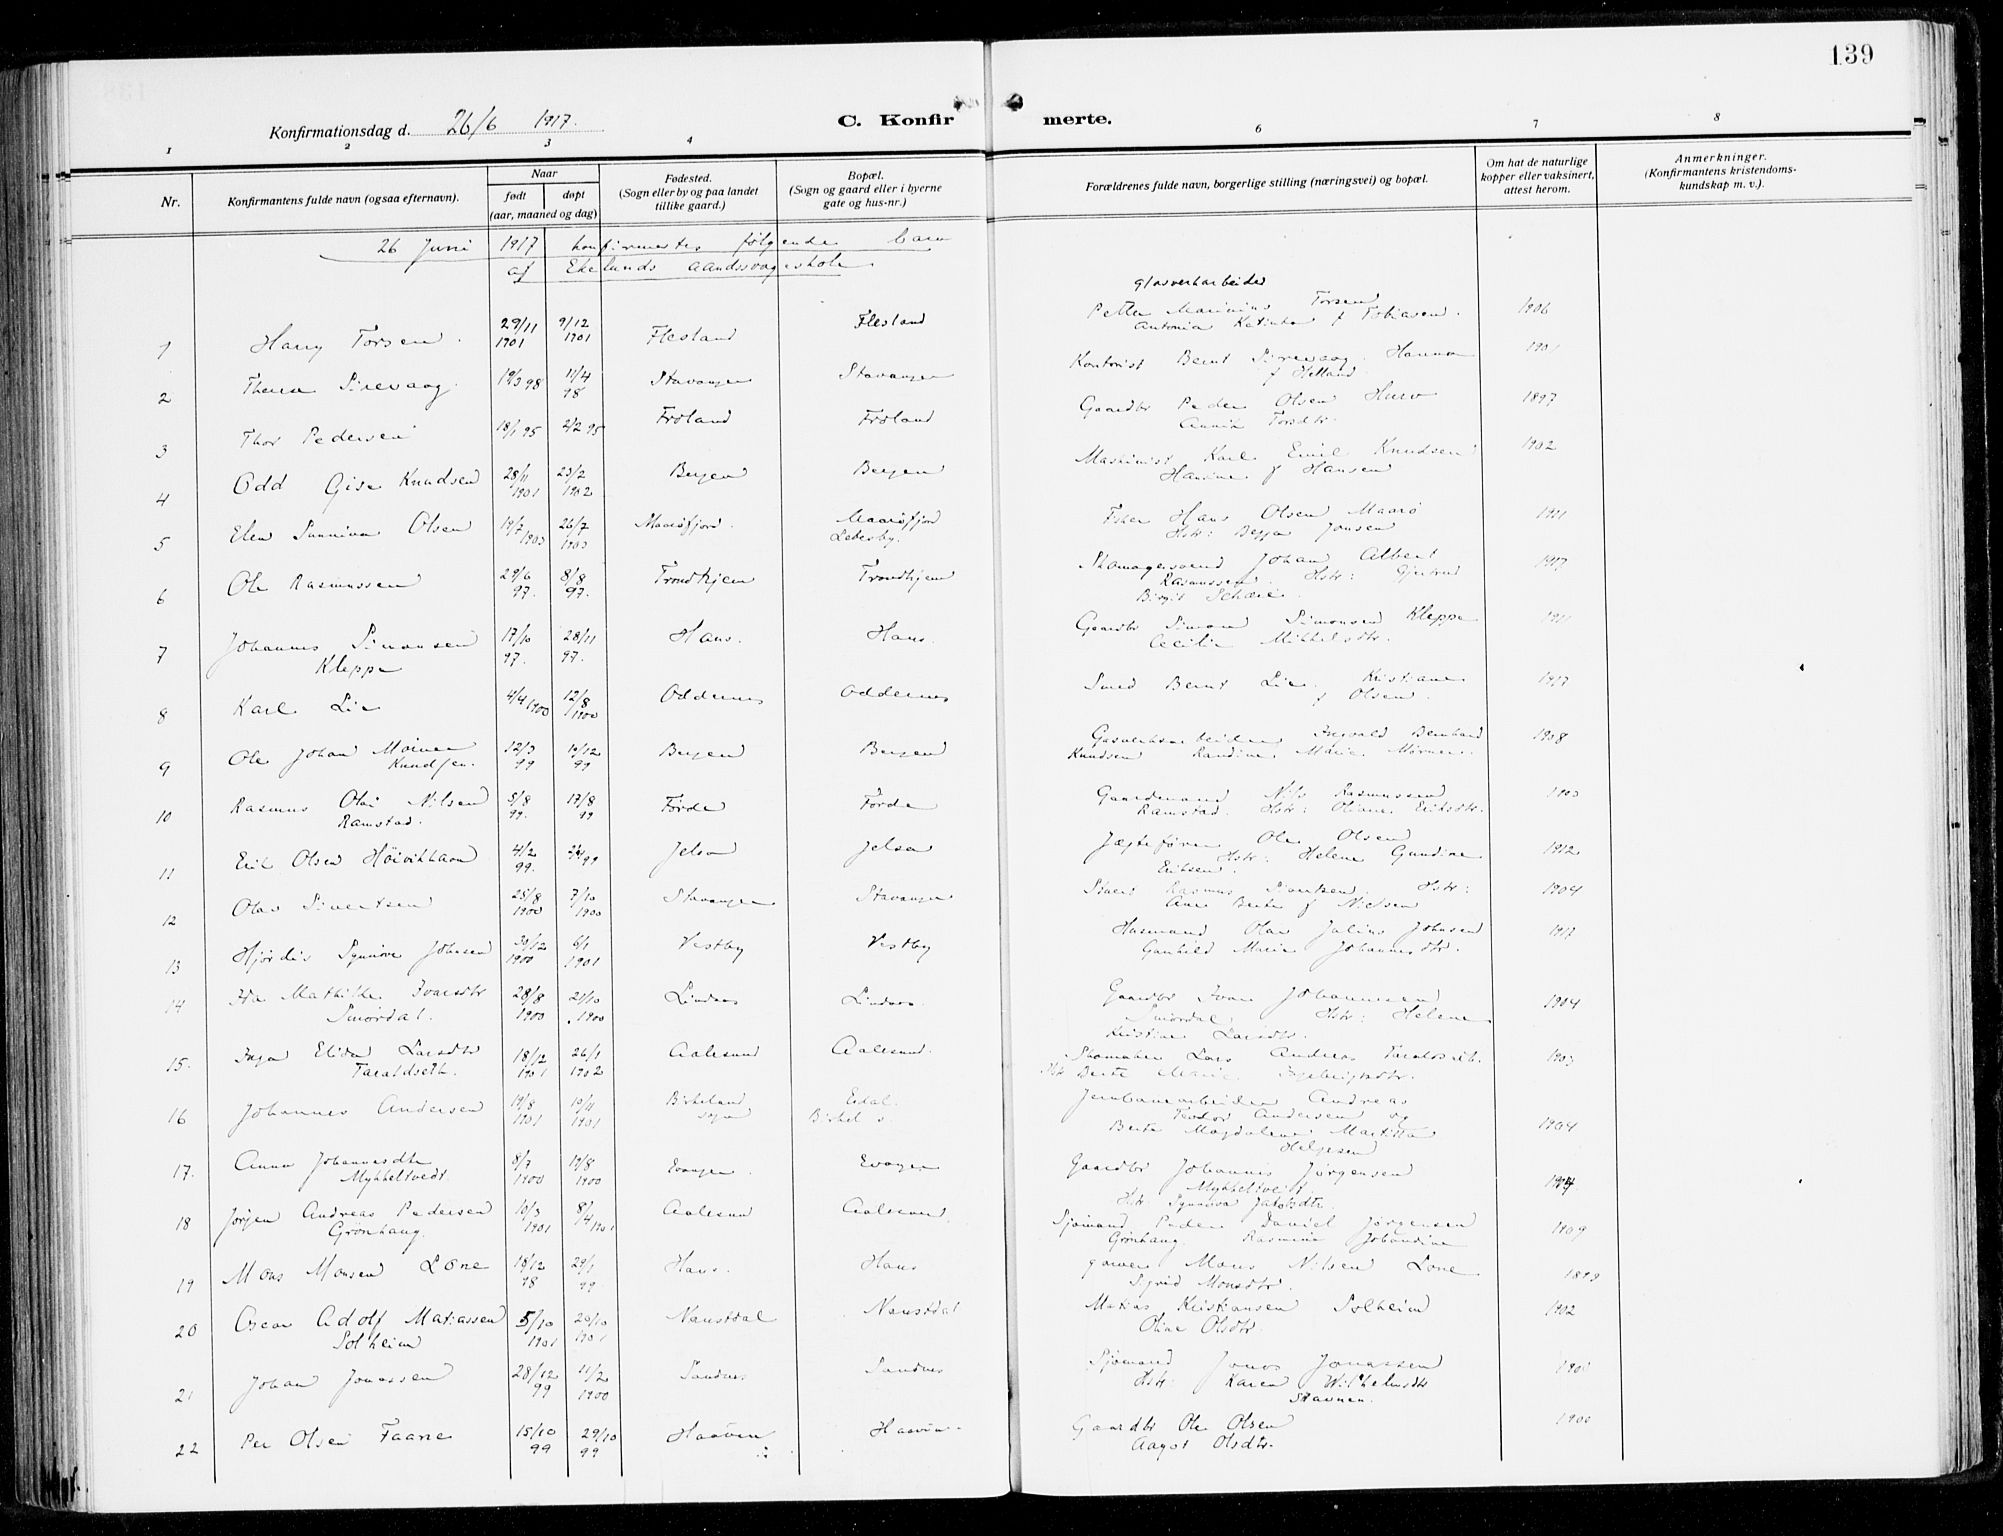 139
Konfirmationsdag d. 26/6 1917.
C. Konfirmerte.
1 2 3 4 6 7 8
Nr. Konfirmantens fulde navn (ogsaa efternavn). Naar født døpt (aar, maaned og dag) Fødested. (Sogn eller by og paa landet tillike gaard.) Bopæl. (Sogn og gaard eller i byerne gate og hus-nr.) Forældrenes fulde navn, borgerlige stilling (næringsvei) og bopæl. Om hat de naturlige kopper eller vaksinert, attest herom. Anmerkninger. (Konfirmantens kristendomskundskap m. v.).
26 Juni 1917 konfirmertes følgende barn
af Ekelunds aandssvageskole
glasverkarbeider
1 Harry Torsen. 29/11 1901 9/12 1901 Flesland Flesland Petter Marinius Torsen 1906
Antonia f Tobiasen.
2 Sirevaag. 19/3 98 11/4 98 Stavanger Stavanger Kontorist Bernt Sirevaag. Hanna 1901
f Helland.
3 Thor Pedersen 18/1 95 2/2 95 Froland Froland Gaardbr Peder Olsen 1897
Torsdtr.
4 Odd Knudsen 28/11 1901 23/2 1902 Bergen Bergen Maskinist Karl Emil Knudsen 1902
Hansine f Hansen
5 Elen Sunniva Olsen 19/7 1903 26/7 1903 Maarøfjord. Maarøfjord Lebesby. Fisker Hans Olsen Maarø 1911
Hstr: Jonsen
6 Ole Rasmussen 29/6 97. 8/8 97. Trondhjem Trondhjem Skomagersvend Johan Albert 1917
Rasmussen. Hstr: Gjertrud
Birgit
7 Johannes Simonsen 17/10 97. 28/11 97. Hans. Hans. Gaardbr Simon Simonsen Kleppe 1911
Kleppe Cecilie Mikkelsdtr.
8 Karl Lie 4/4 1900 12/8 1900 Oddernes Oddernes Smed Bernt Lie, Kristiane 1917
f Olsen.
9 Ole Johan 12/3 99 10/12 99 Bergen Bergen Gasverksarbeider Ingvald Bernhard 1908
Knudsen. Knudsen Randine Marie
10 Rasmus Olai Nilsen 5/8 99. 17/8 99 Førde Førde Gaardmand Nils Rasmussen 1903
Ramstad. Ramstad. Hstr: Oliane Eriksdtr.
11 Erik Olsen 4/2 99. Jelsa Jelsa Jægtefører Ole Olsen 1912
Hstr: Helene Gundine
Eriksen.
12 Olav Sivertsen 25/8 1900 7/10 1900 Stavanger Stavanger Rasmus Sivertsen. Hstr: 1904
Ane Berte f Nielsen
13 Hjørdis Synnøve Johnsen 30/12 1900 6/1 1901 Vestby Vestby Husmand Olav Julius Johnsen 1917
Gunhild Marie Johannesdtr.
14 Ida Mathilde Ivarsdtr 28/8 1900 21/10 1900 Lindaas Lindaas. Gaardbr Ivar Johannessen 1904
Smørdal. Smørdal. Hstr: Helene
Kristine Larsdtr.
15. Inga Elida Larsdtr 18/12 1901 26/1 1902 Aalesund Aalesund. Skomaker Lars Andreas 1903
Taraldseth. Hstr Berte Marie Ingebrigtsdtr.
16 Johannes Andersen 19/8 1901 10/11 1901 Birkeland sogn Birkel s. Jernbanearbeider Andreas
Teodor Andersen og
Berte Magdalene Martitta 1904
Helgesen
17. Anna Johannesdtr 8/7 1900 19/8 1900 Evanger. Evanger Gaardbr Johannes Jørgensen
Mykkeltvedt. Mykkeltveit.
Hstr Synneva Jakobsdtr.
18 Jørgen Andreas Pedersen 10/3 1901 8/4 1901 Aalesund Aalesund. Sjømand Peder Daniel Jørgensen 1909
Grønhaug. Grønhaug. Rasmine Johandine
19 Mons Monsen Lone 18/12 98 29/1 99. Hans. Hans garver Mons Nilsen Lone 1899
Sigrid Monsdtr.
20 Oscar Adolf Matiassen 5/10 1901 20/10 1901 Naustdal Naustdal Matias Kristiansen Solheim 1902
Solheim Oline Olsdtr.
21 Johan Jonassen 28/12 99 11/2 1900 Sandnes Sandnes Sjømand Jonas Jonassen
Hstr: Karen Wilhelmsdtr
Stavnen.
22 Per Olsen Faane 15/10 99 29/10 99 Gaardbr Ole Olsen 1900
Aagot Olsdtr.